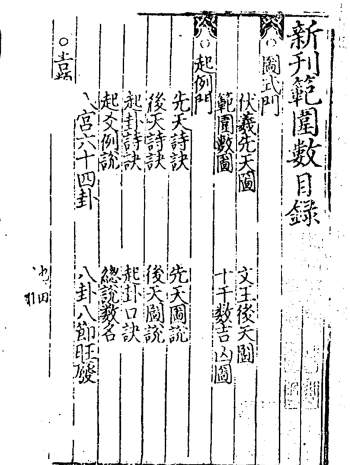 新刊範圍數目錄
圖式門
伏羲先天圖 文王後天圖
範圍數圖 十干數吉凶圖
起例門
先天詩訣 先天圖說
後天詩訣 後天圖說
起卦詩訣 起卦口訣
起爻例說 總說數名
八宮六十四卦 八卦八節旺廢